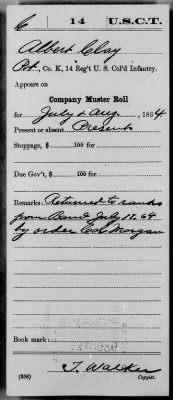 C 14 U.S.C.T.
Albert Clay
Pvt., Co. K, 14 Reg't U. S. Col'd Infantry.
Appears on
Company Muster Roll
for July & Aug, 1864
Present or absent Present
Stoppage, $ 100 for
Due Gov't, $ 100 for
Remarks: Returned to ranks
from Band July 12.64
by order Col Morgan
Book mark:
T. Walker
(358) Copyist.